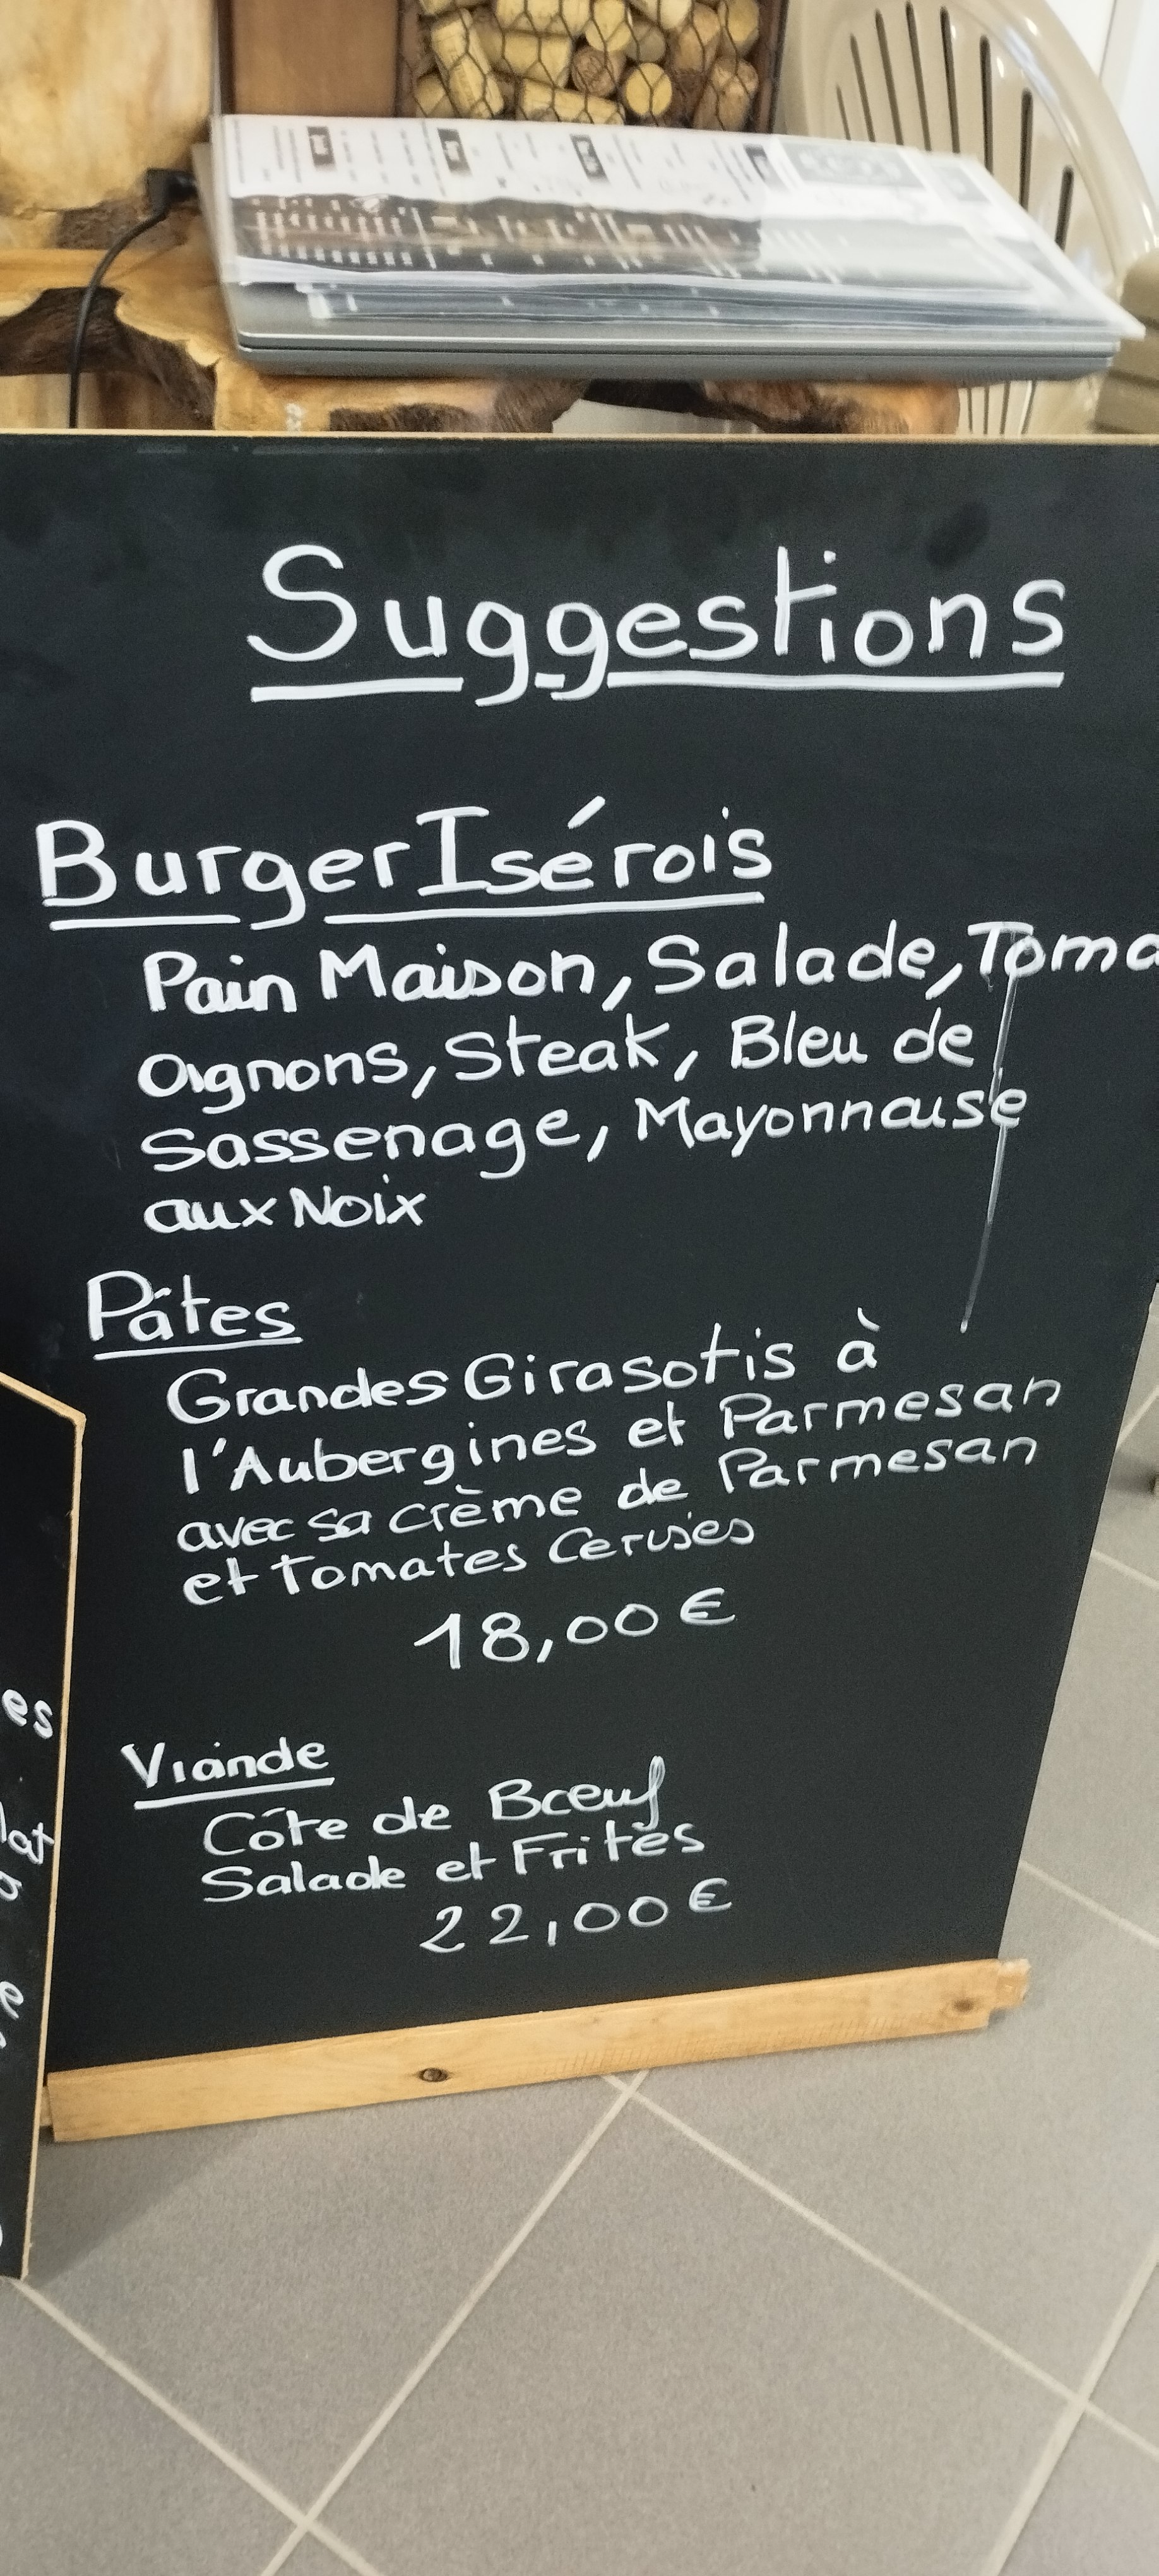 Suggestions
Burger Isérois
Pain Maison, Salade, Toma
Oignons, Steak, Bleu de
Sassenage, Mayonnaise
aux Noix
Pâtes
Grandes Girasotis à
l'Aubergines et Parmesan
avec sa crème de Parmesan
et Tomates Cerises
18,00 €
Viande
Côte de Bœuf
Salade et Frites
22,00 €
es
lat
e